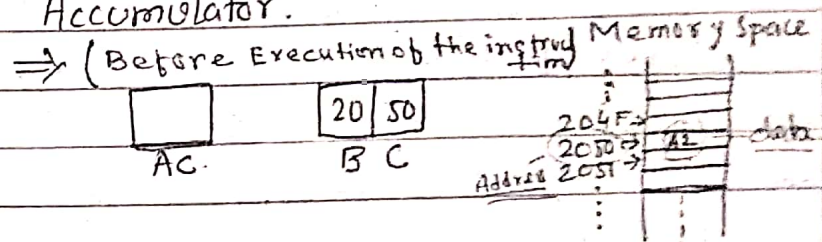 Accumulator.
⇒ (Before Execution of the instruction Memory Space
20 50
AC. B C
204F →
2050 →
Address 2051 →
data